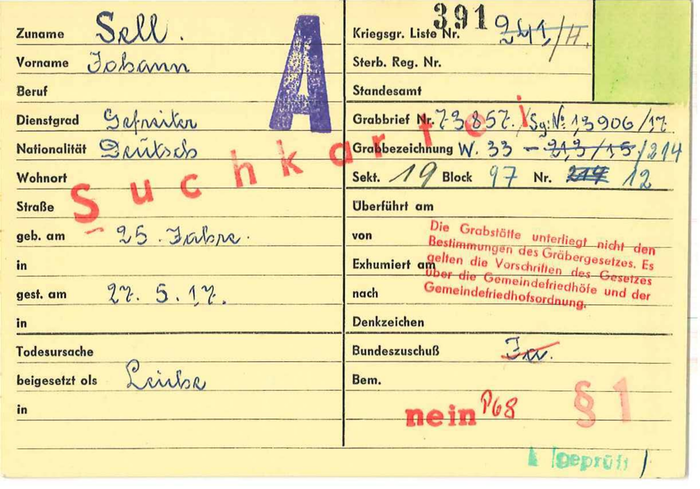 Zuname Sell.
Vorname Johann
Beruf
Dienstgrad Gefreiter
Nationalität Deutsch
Wohnort
Straße
geb. am 25. Jahre.
in
gest. am 27. 5. 17.
in
Todesursache
beigesetzt als Leiche
in
A
Suchkartei
391
Kriegsgr. Liste Nr. 241/II.
Sterb. Reg. Nr.
Standesamt
Grabbrief Nr. 73857. /Sg: No 13906/17
Grabbezeichnung W. 33 - 213/15/214
Sekt. 19 Block 97 Nr. 214 12
Überführt am
von
Exhumiert am
nach
Die Grabstätte unterliegt nicht den
Bestimmungen des Gräbergesetzes. Es
gelten die Vorschriften des Gesetzes
über die Gemeindefriedhöfe und der
Gemeindefriedhofsordnung.
Denkzeichen
Bundeszuschuß Ja.
Bem.
nein P68
§ 1
geprüft